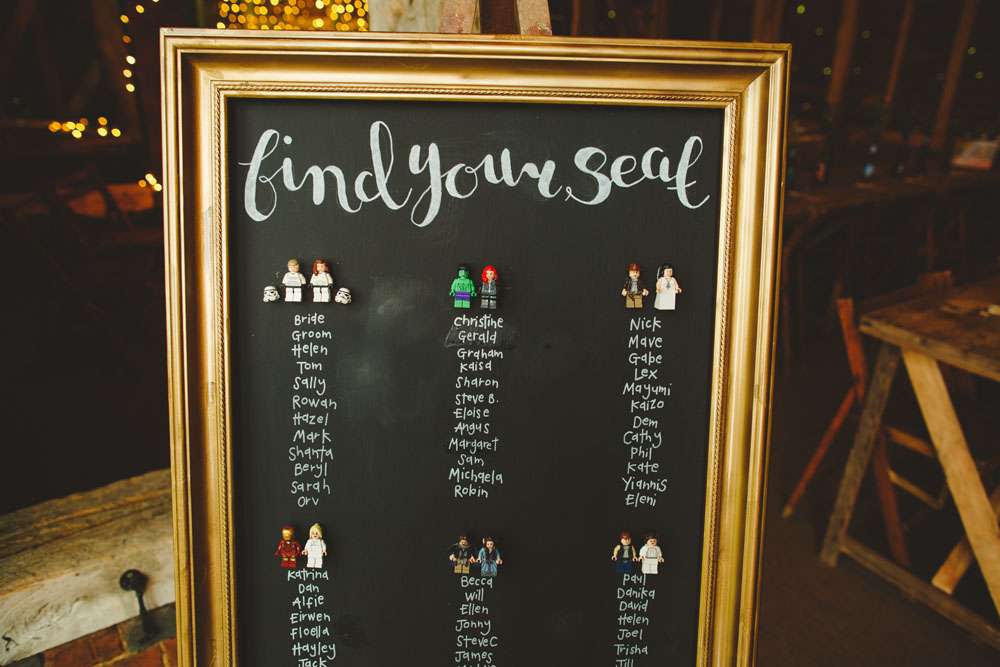 find your seat
Bride
Groom
Helen
Tom
Sally
Rowan
Hazel
Mark
Shanta
Beryl
Sarah
Orv
Christine
Gerald
Graham
Kaisa
Sharon
Steve B.
Eloise
Angus
Margaret
Sam
Michaela
Robin
Nick
Mave
Gabe
Lex
Mayumi
Kaizo
Dem
Cathy
Phil
Kate
Yiannis
Eleni
Katrina
Dan
Alfie
Eirwen
Floella
Hayley
Jack
Becca
Will
Ellen
Jonny
Steve C
James
Paul
Danika
David
Helen
Joel
Trisha
Jill